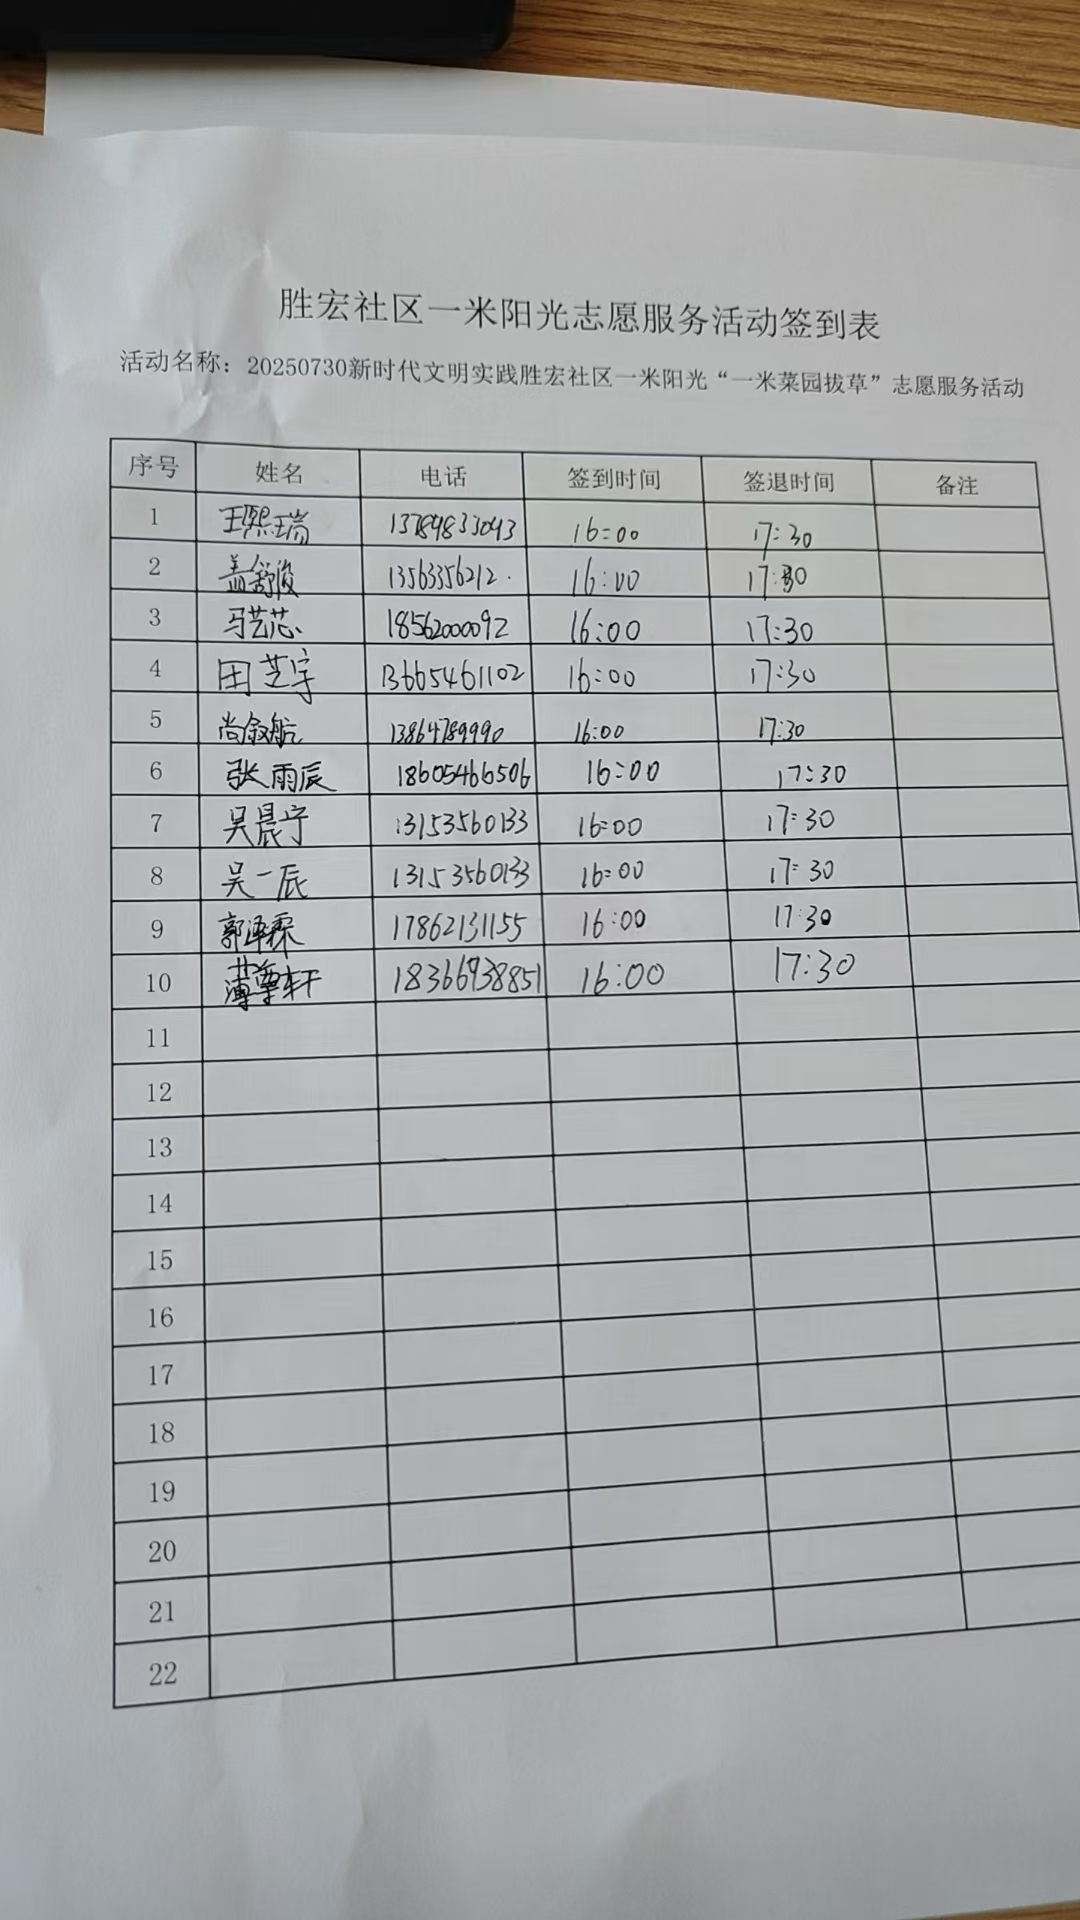 胜宏社区一米阳光志愿服务活动签到表
活动名称：20250730新时代文明实践胜宏社区一米阳光“一米菜园拔草”志愿服务活动
序号 姓名 电话 签到时间 签退时间 备注
1 王熙瑞 13789833093 16:00 17:30
2 盖舒俊 13563356212. 16:00 17:30
3 马艺芯 18562000092 16:00 17:30
4 田芝宇 13665461102 16:00 17:30
5 尚叙航 13864789990 16:00 17:30
6 张雨辰 18605466506 16:00 17:30
7 吴晨宁 13153560133 16:00 17:30
8 吴一辰 13153560133 16:00 17:30
9 郭泽霖 17862131155 16:00 17:30
10 轩 18366938851 16:00 17:30
11
12
13
14
15
16
17
18
19
20
21
22